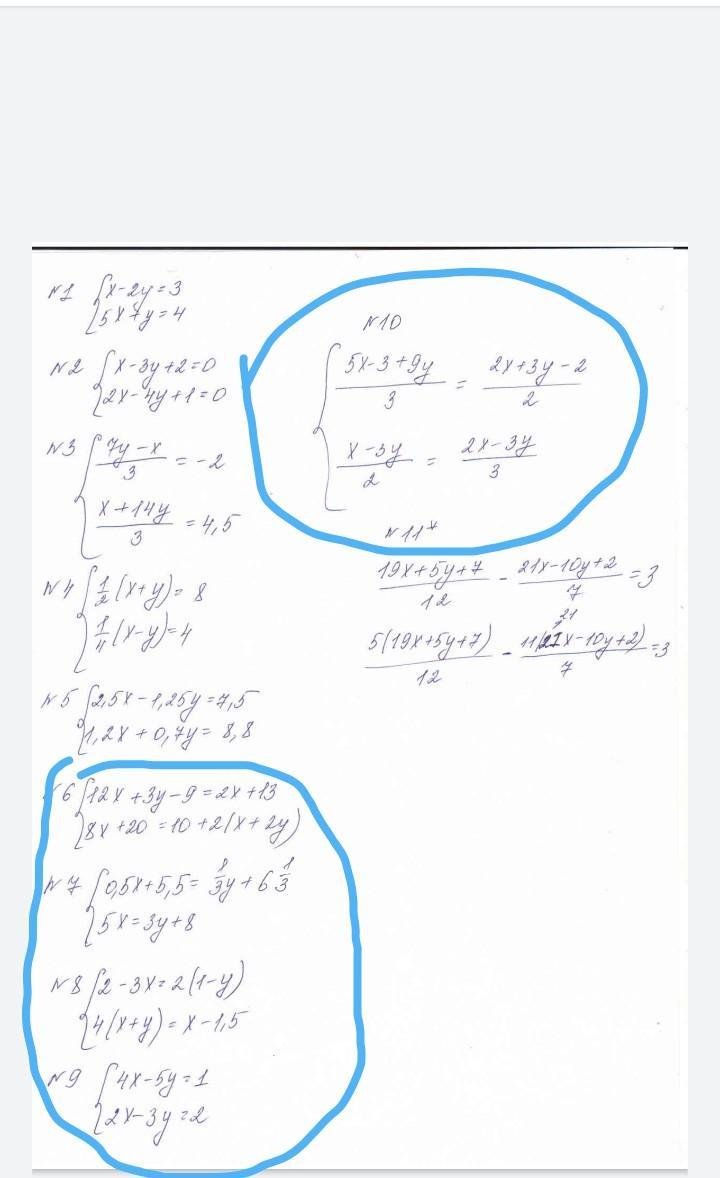 №1 { x-2y=3
5x+y=4
№2 { x-3y+2=0
2x-4y+1=0
№3 { (7y-x)/3 = -2
(x+14y)/3 = 4,5
№4 { 1/2(x+y)= 8
(x-y)=4
№5 { 2,5x-1,25y=7,5
1,2x+0,7y= 8,8
№6 { 12x+3y-9=2x+13
8x+20=10+2(x+2y)
№7 { 0,5x+5,5= y+6 1/3
5x=3y+8
№8 { 2-3x=2(1-y)
4(x+y)=x-1,5
№9 { 4x-5y=1
2x-3y=2
№10
{ (5x-3+9y)/3 = (2x+3y-2)/2
(x-3y)/2 = (2x-3y)/3
№11*
(19x+5y+7)/12 - (21x-10y+2)/7 =3
21
5(19x+5y+7)/12 - 11(21x-10y+2)/7 =3